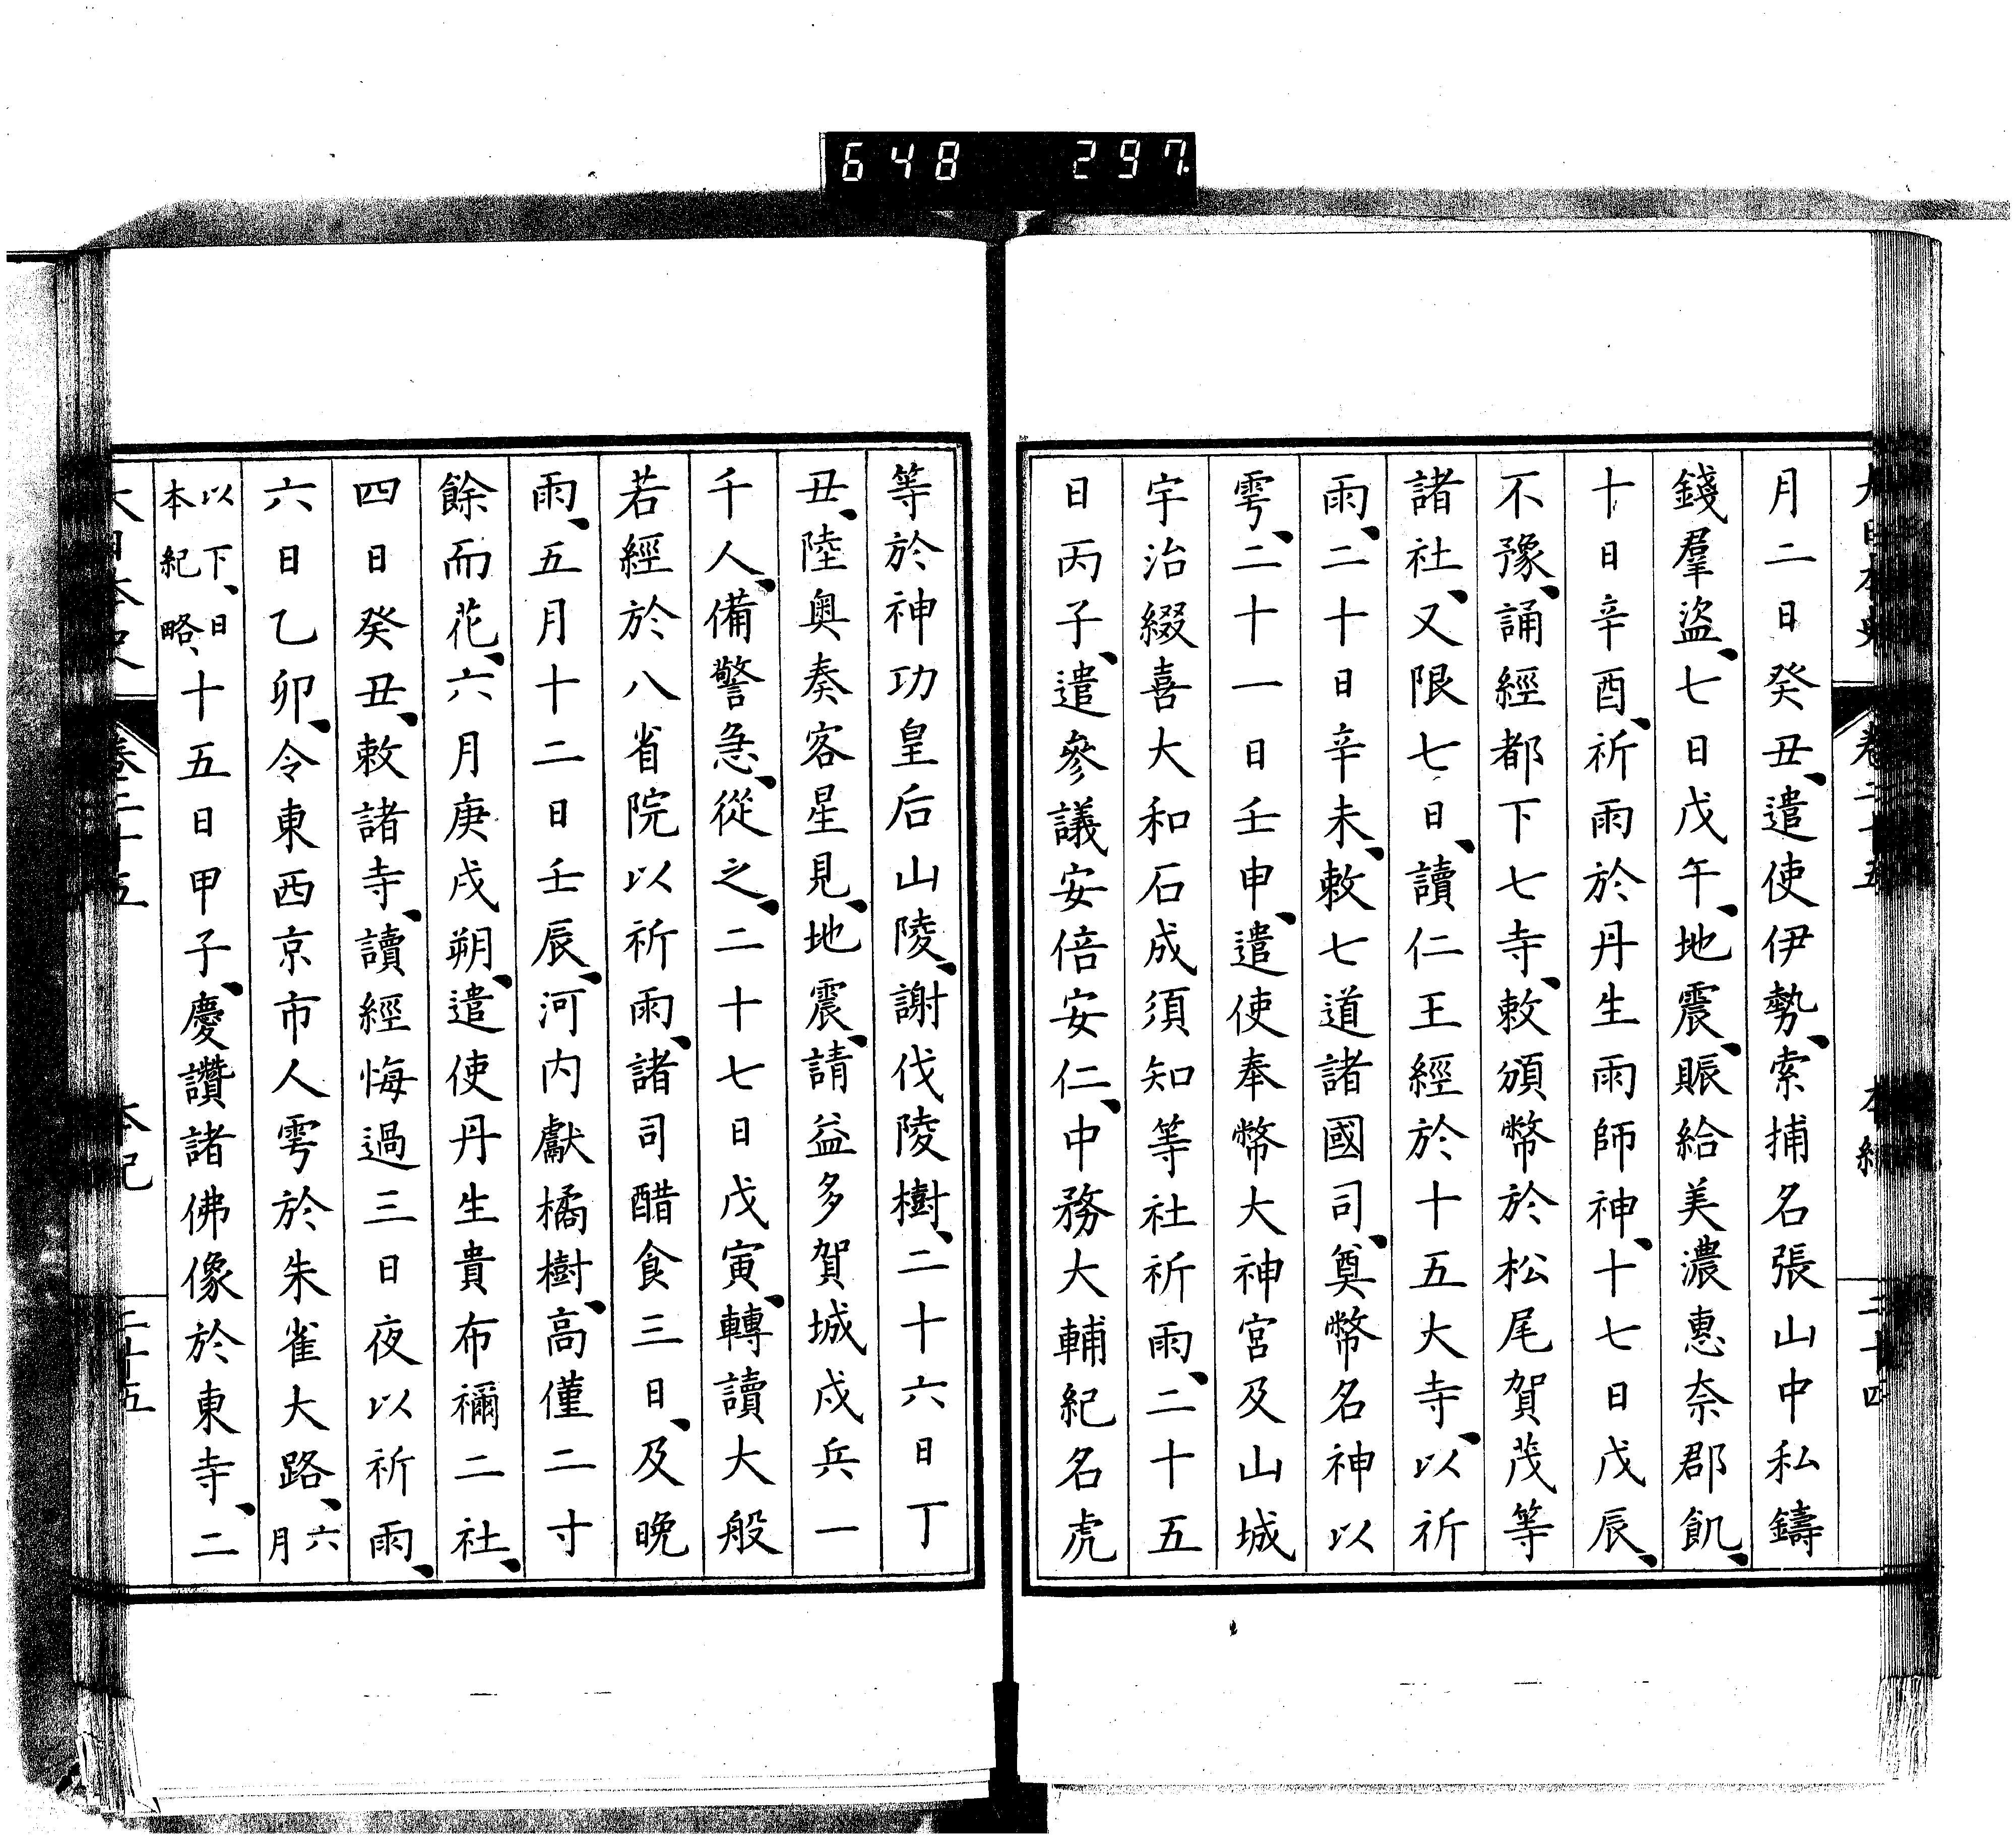 648 297
大日本史 卷二十五 本紀 二十四
月二日癸丑、遣使伊勢、索捕名張山中私鑄
錢羣盜、七日戊午、地震、賑給美濃惠奈郡飢、
十日辛酉、祈雨於丹生雨師神、十七日戊辰、
不豫、誦經都下七寺、敕頒幣於松尾賀茂等
諸社、又限七日、讀仁王經於十五大寺、以祈
雨、二十日辛未、敕七道諸國司、奠幣名神以
雩、二十一日壬申、遣使奉幣大神宮及山城
宇治綴喜大和石成須知等社祈雨、二十五
日丙子、遣參議安倍安仁、中務大輔紀名虎
等於神功皇后山陵、謝伐陵樹、二十六日丁
丑、陸奧奏客星見、地震、請益多賀城戍兵一
千人、備警急、從之、二十七日戊寅、轉讀大般
若經於八省院以祈雨、諸司醋食三日、及晚
雨、五月十二日壬辰、河內獻橘樹、高僅二寸
餘而花、六月庚戌朔、遣使丹生貴布禰二社、
四日癸丑、敕諸寺、讀經悔過三日夜以祈雨、
六日乙卯、令東西京市人雩於朱雀大路、六月
以下、日本紀略、十五日甲子、慶讚諸佛像於東寺、二
大日本史 卷二十五 本紀 二十五